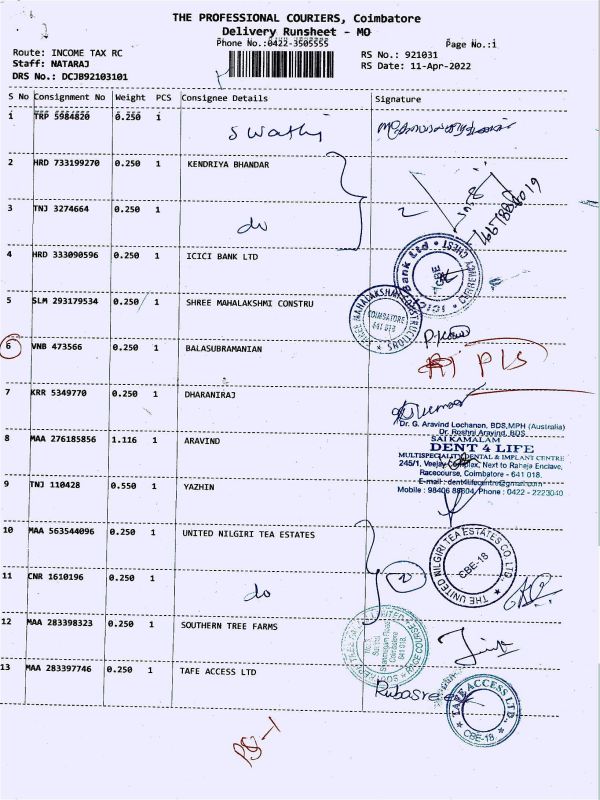 THE PROFESSIONAL COURIERS, Coimbatore
Delivery Runsheet - MO
Phone No.:0422-3505555
Page No.:1
Route: INCOME TAX RC
RS No.: 921031
Staff: NATARAJ
RS Date: 11-Apr-2022
DRS No.: DCJB92103101
S No Consignment No Weight PCS Consignee Details Signature
1 TRP 5984820 0.250 1 Swathi
2 HRD 733199270 0.250 1 KENDRIYA BHANDAR
3 TNJ 3274664 0.250 1 do
2
4 HRD 333090596 0.250 1 ICICI BANK LTD
ICICI Bank Ltd CURRENCY CHEST CBE
5 SLM 293179534 0.250 1 SHREE MAHALAKSHMI CONSTRU
SHREE MAHALAKSHMI CONSTRUCTIONS COIMBATORE 641 018
6 VNB 473566 0.250 1 BALASUBRAMANIAN
7 KRR 5349770 0.250 1 DHARANIRAJ
Dr. G. Aravind Lochanan, BDS,MPH (Australia)
Dr. Roshni Aravind, BDS
8 MAA 276185856 1.116 1 ARAVIND
SAI KAMALAM
DENT 4 LIFE
MULTISPECIALITY DENTAL & IMPLANT CENTRE
245/1, Veejay Complex, Next to Raheja Enclave,
Racecourse, Coimbatore - 641 018.
E-mail : dent4lifecentre@gmail.com
Mobile : 98406 88804, Phone : 0422 - 2223040
9 TNJ 110428 0.550 1 YAZHIN
10 MAA 563544096 0.250 1 UNITED NILGIRI TEA ESTATES
THE UNITED NILGIRI TEA ESTATES CO. LTD. CBE-18
11 CNR 1610196 0.250 1 do
2
12 MAA 283398323 0.250 1 SOUTHERN TREE FARMS
13 MAA 283397746 0.250 1 TAFE ACCESS LTD
Rubasree
TAFE ACCESS LTD. CBE-18